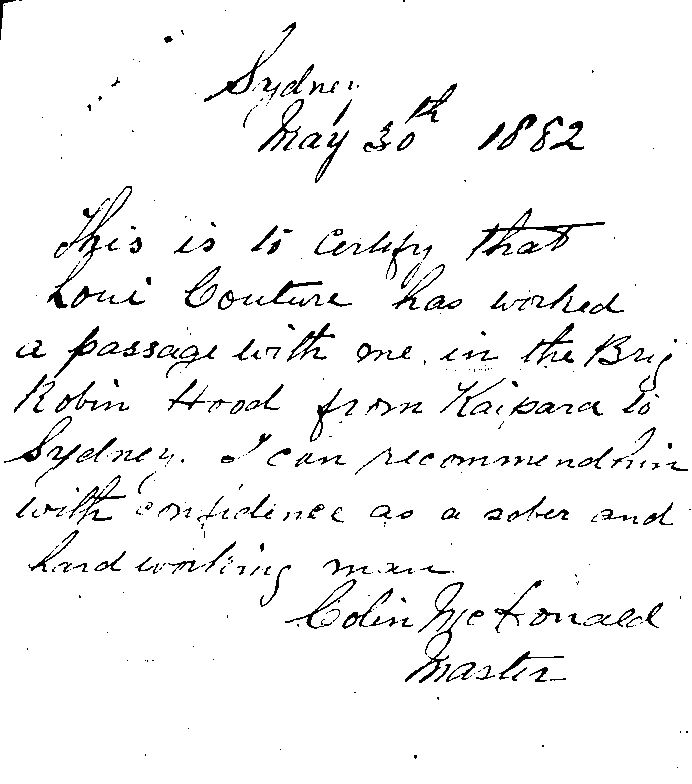 Sydney
May 30th 1882
This is to certify that
Loui Couture has worked
a passage with me in the Brig
Robin Hood from Kaipara to
Sydney. I can recommend him
with confidence as a sober and
hard working man
Colin McDonald
Master